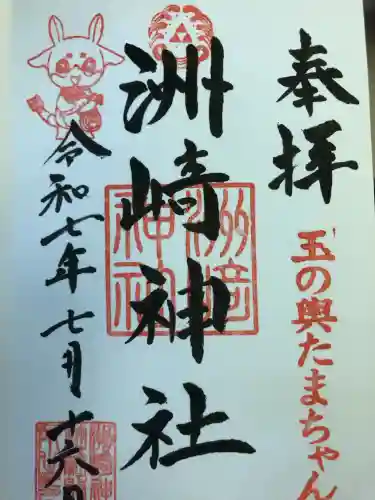 奉拝
玉の輿たまちゃん
洲崎神社
令和七年七月十六日
洲崎神社